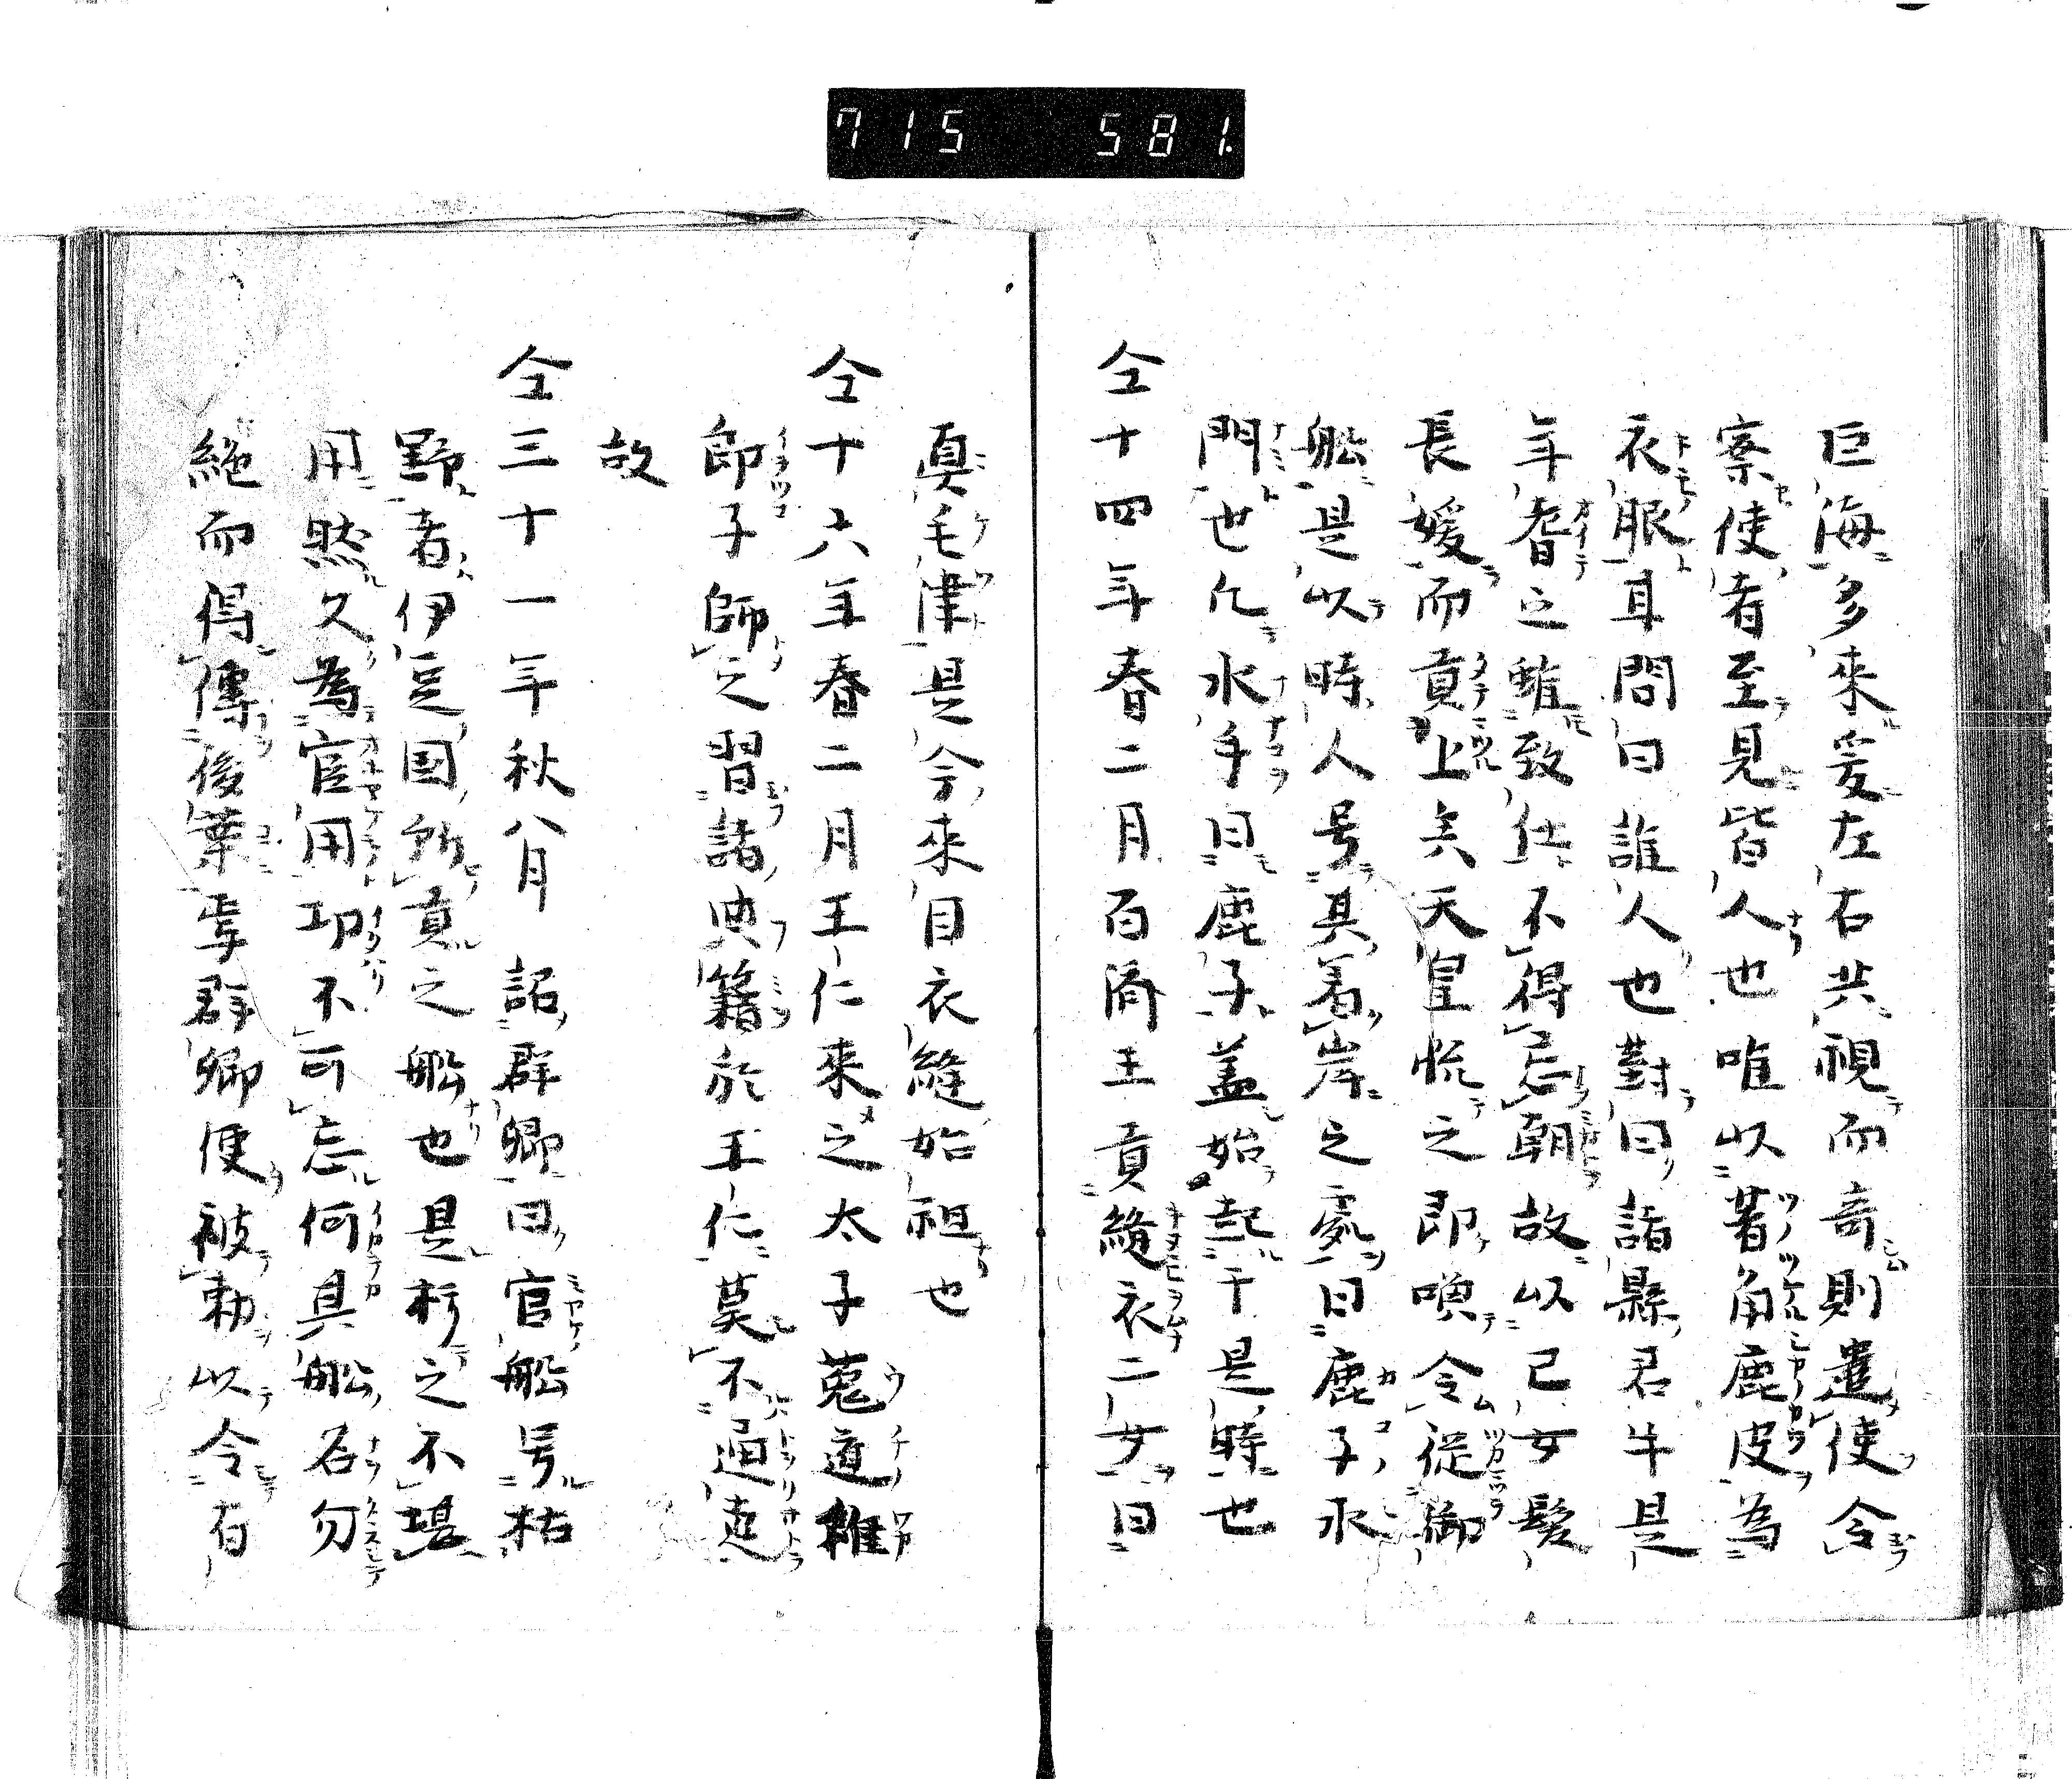 715 581.
巨海多來爰左右共視而奇則遣使令
察使者至見皆人也唯以著角鹿皮為
衣服耳問曰誰人也對曰諸縣君牛是
年耆之雖致仕不得忘朝故以己女髮
長媛而貢上矣天皇悦之即喚令從御
舩是以時人号其着岸之處曰鹿子水
門也凡水手曰鹿子盖始起于是時也
仝十四年春二月百済王貢縫衣工女曰
真毛津是今來目衣縫始祖也
仝十六年春二月王仁來之太子菟道稚
郎子師之習諸典籍於王仁莫不通達
故
仝三十一年秋八月 詔群卿曰官舩号枯
野者伊豆国所貢之舩也是朽之不堪
用然久為官用功不可忘何其舩名勿
絶而得傳後葉焉群卿便被勅以令有